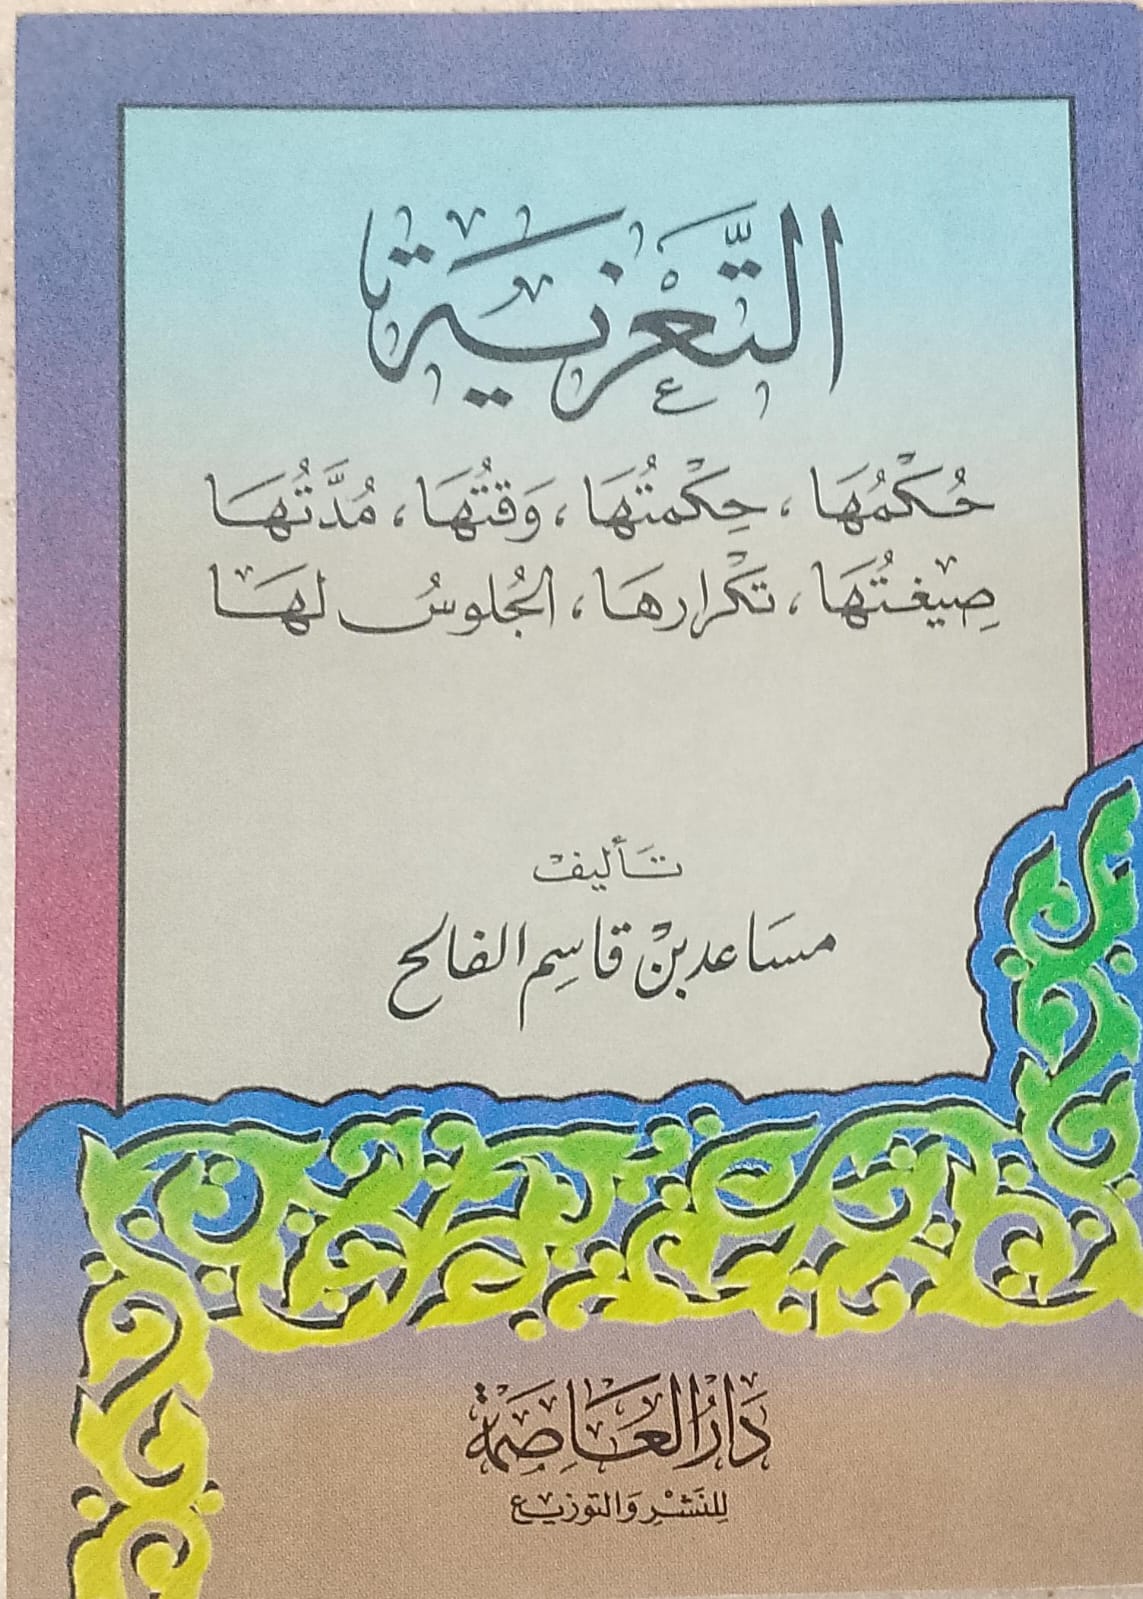 التَّعْزِيَة
حُكْمُهَا، حِكْمَتُهَا، وَقتُهَا، مُدَّتُهَا
صِيغَتُهَا، تَكْرارهَا، الجُلوسُ لهَا
تَأليفْ
مسَاعد بْن قَاسِم الفالح
دَارُ العَاصِمَة
لِلنَشْرِ وَالتوزيع